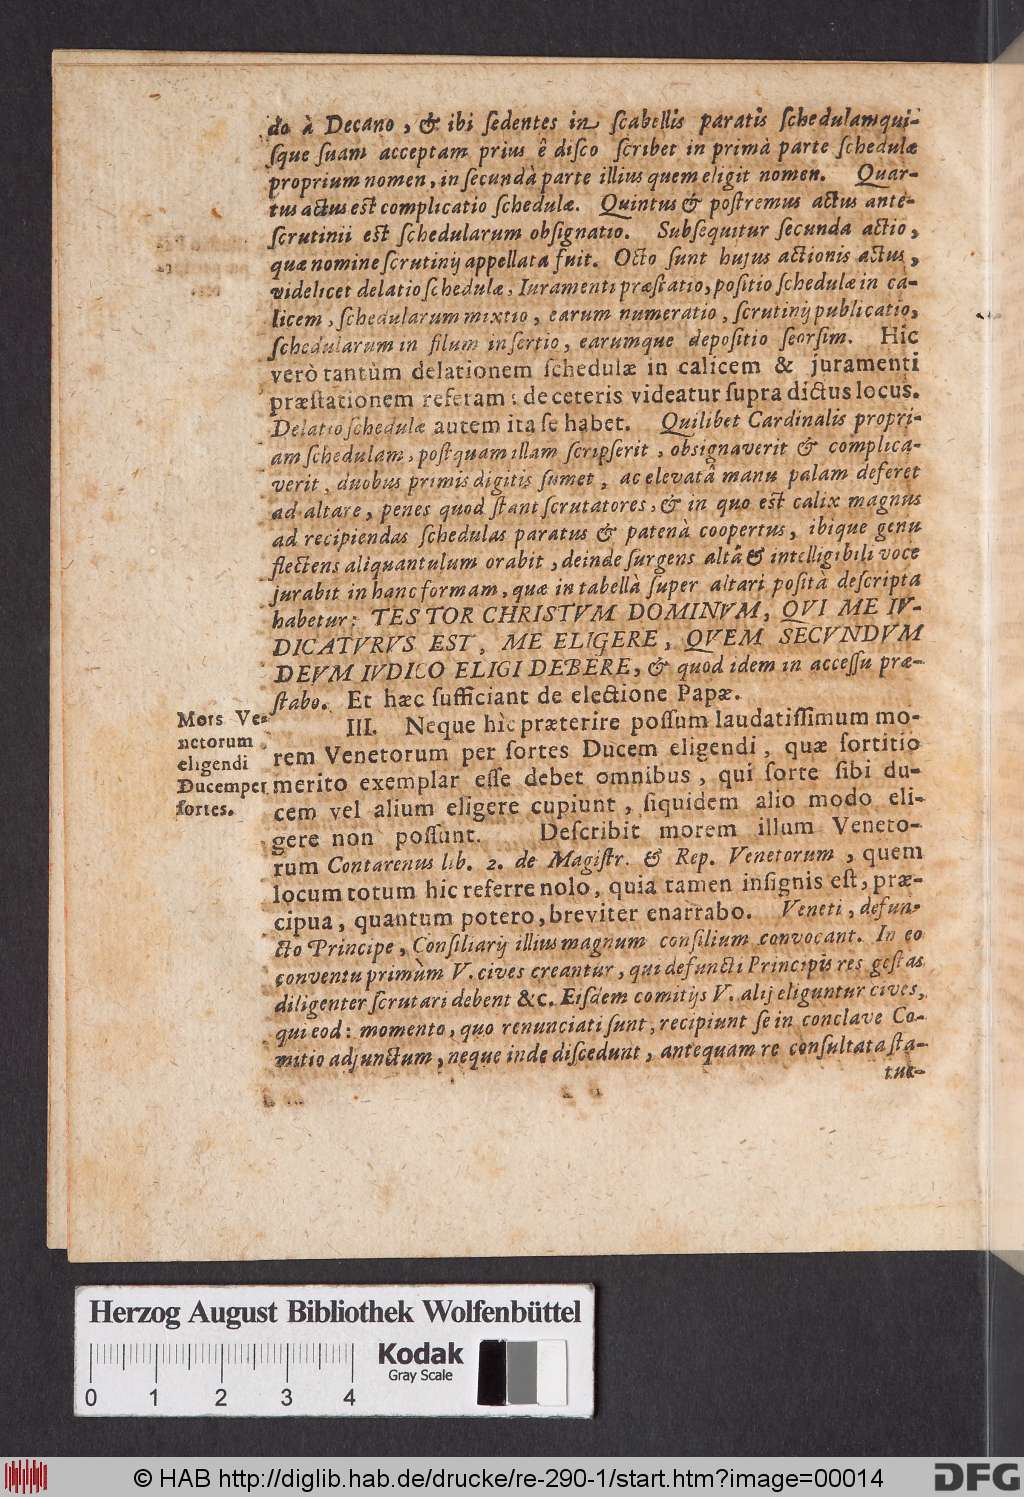 do à Decano, & ibi ſedentes in ſcabellis paratis ſchedulam qui-
ſque ſuam acceptam prius ê diſco ſcribet in primà parte ſchedulæ
proprium nomen, in ſecundà parte illius quem eligit nomen. Quar-
tus actus eſt complicatio ſchedulæ. Quintus & poſtremus actus ante-
ſcrutinii eſt ſchedularum obſignatio. Subſequitur ſecunda actio,
quæ nomine ſcrutinij appellata fuit. Octo ſunt hujus actionis actus,
videlicet delatio ſchedulæ, Iuramenti præſtatio, poſitio ſchedulæ in ca-
licem, ſchedularum mixtio, earum numeratio, ſcrutinij publicatio,
ſchedularum in filum inſertio, earumque depoſitio ſeorſim. Hic
verò tantùm delationem ſchedulæ in calicem & juramenti
præſtationem referam: de ceteris videatur ſupra dictus locus.
Delatio ſchedulæ autem ita ſe habet. Quilibet Cardinalis propri-
am ſchedulam, poſtquam illam ſcripſerit, obſignaverit & complica-
verit, duobus primis digitis ſumet, ac elevatâ manu palam deferet
ad altare, penes quod ſtant ſcrutatores, & in quo eſt calix magnus
ad recipiendas ſchedulas paratus & patenà coopertus, ibique genu
flectens aliquantulum orabit, deinde ſurgens altâ & intelligibili voce
jurabit in hanc formam, quæ in tabellà ſuper altari poſità deſcripta
habetur: TESTOR CHRISTVM DOMINVM, QVI ME IV-
DICATVRVS EST, ME ELIGERE, QVEM SECVNDVM
DEVM IVDICO ELIGI DEBERE, & quod idem in acceſſu præ-
ſtabo. Et hæc ſufficiant de electione Papæ.
III. Neque hìc præterire poſſum laudatiſſimum mo-
rem Venetorum per ſortes Ducem eligendi, quæ ſortitio
merito exemplar eſſe debet omnibus, qui ſorte ſibi du-
cem vel alium eligere cupiunt, ſiquidem alio modo eli-
gere non poſſunt. Deſcribit morem illum Veneto-
rum Contarenus lib. 2. de Magiſtr. & Rep. Venetorum, quem
locum totum hic referre nolo, quia tamen inſignis eſt, præ-
cipua, quantum potero, breviter enarrabo. Veneti, defun-
cto Principe, Conſiliarij illius magnum conſilium convocant. In eo
conventu primùm V. cives creantur, qui defuncti Principis res geſtas
diligenter ſcrutari debent &c. Eiſdem comitijs V. alij eliguntur cives,
qui eod: momento, quo renunciati ſunt, recipiunt ſe in conclave Co-
mitio adjunctum, neque inde diſcedunt, antequam re conſultata ſta-
tue-
Mors Ve-
netorum
eligendi
Ducem per
ſortes.
Herzog August Bibliothek Wolfenbüttel
Kodak
Gray Scale
0 1 2 3 4
© HAB http://diglib.hab.de/drucke/re-290-1/start.htm?image=00014
DFG